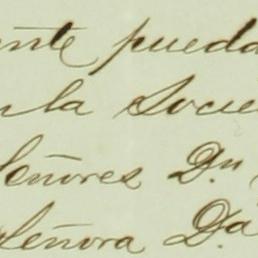 ente pueda
n la Socie
Señores Dn
Señora Da